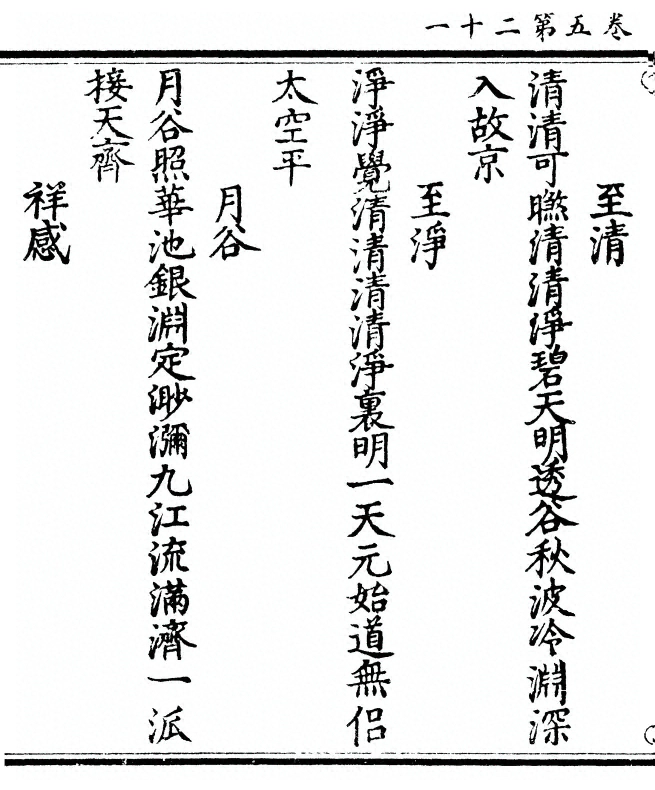 卷五第二十一
至清
清清可瞧清清淨碧天明透谷秋波冷淵深
入故京
至淨
淨淨覺清清清清淨裏明一天元始道無侶
太空平
月谷
月谷照華池銀淵定渺瀰九江流滿濟一派
接天齊
祥感